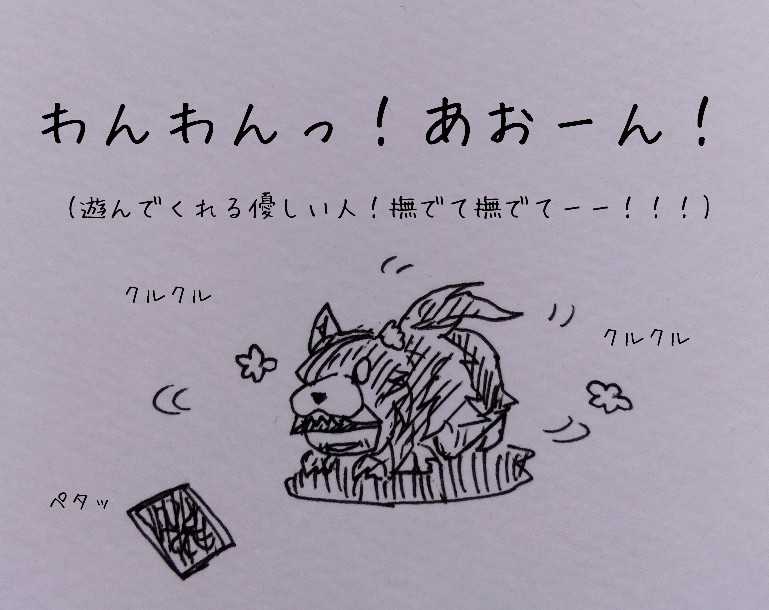 わんわんっ！あおーん！
（遊んでくれる優しい人！撫でて撫でてーー！！！）
クルクル
クルクル
ペタッ